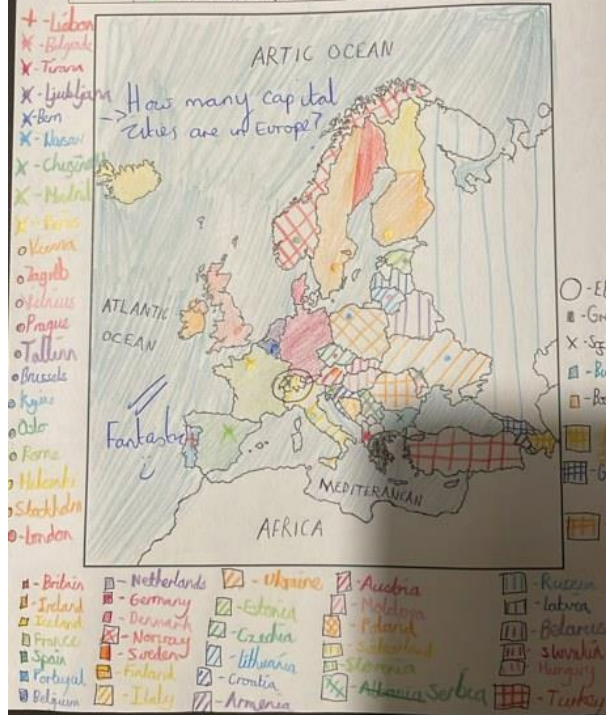 + - Lisbon
x - Belgrade
x - Tirana
x - Ljubljana
x - Bern
x - Warsaw
x - Madrid
x - Paris
o Vienna
o Zagreb
o Vilnius
o Prague
o Tallinn
o Brussels
o Oslo
o Rome
o Helsinki
o Stockholm
o - London
ARTIC OCEAN
How many capital
cities are in Europe?
ATLANTIC
OCEAN
Fantastic
MEDITERANEAN
AFRICA
- Britain
- Ireland
- Iceland
- France
- Spain
- Portugal
- Belgium
- Netherlands
- Germany
- Denmark
- Norway
- Sweden
- Finland
- Italy
- Ukraine
- Estonia
- Czechia
- Lithuania
- Croatia
- Armenia
- Austria
- Moldova
- Poland
- Slovenia
- Albania Serbia
- Russia
- Latvia
- Belarus
- Slovakia
- Hungary
- Turkey